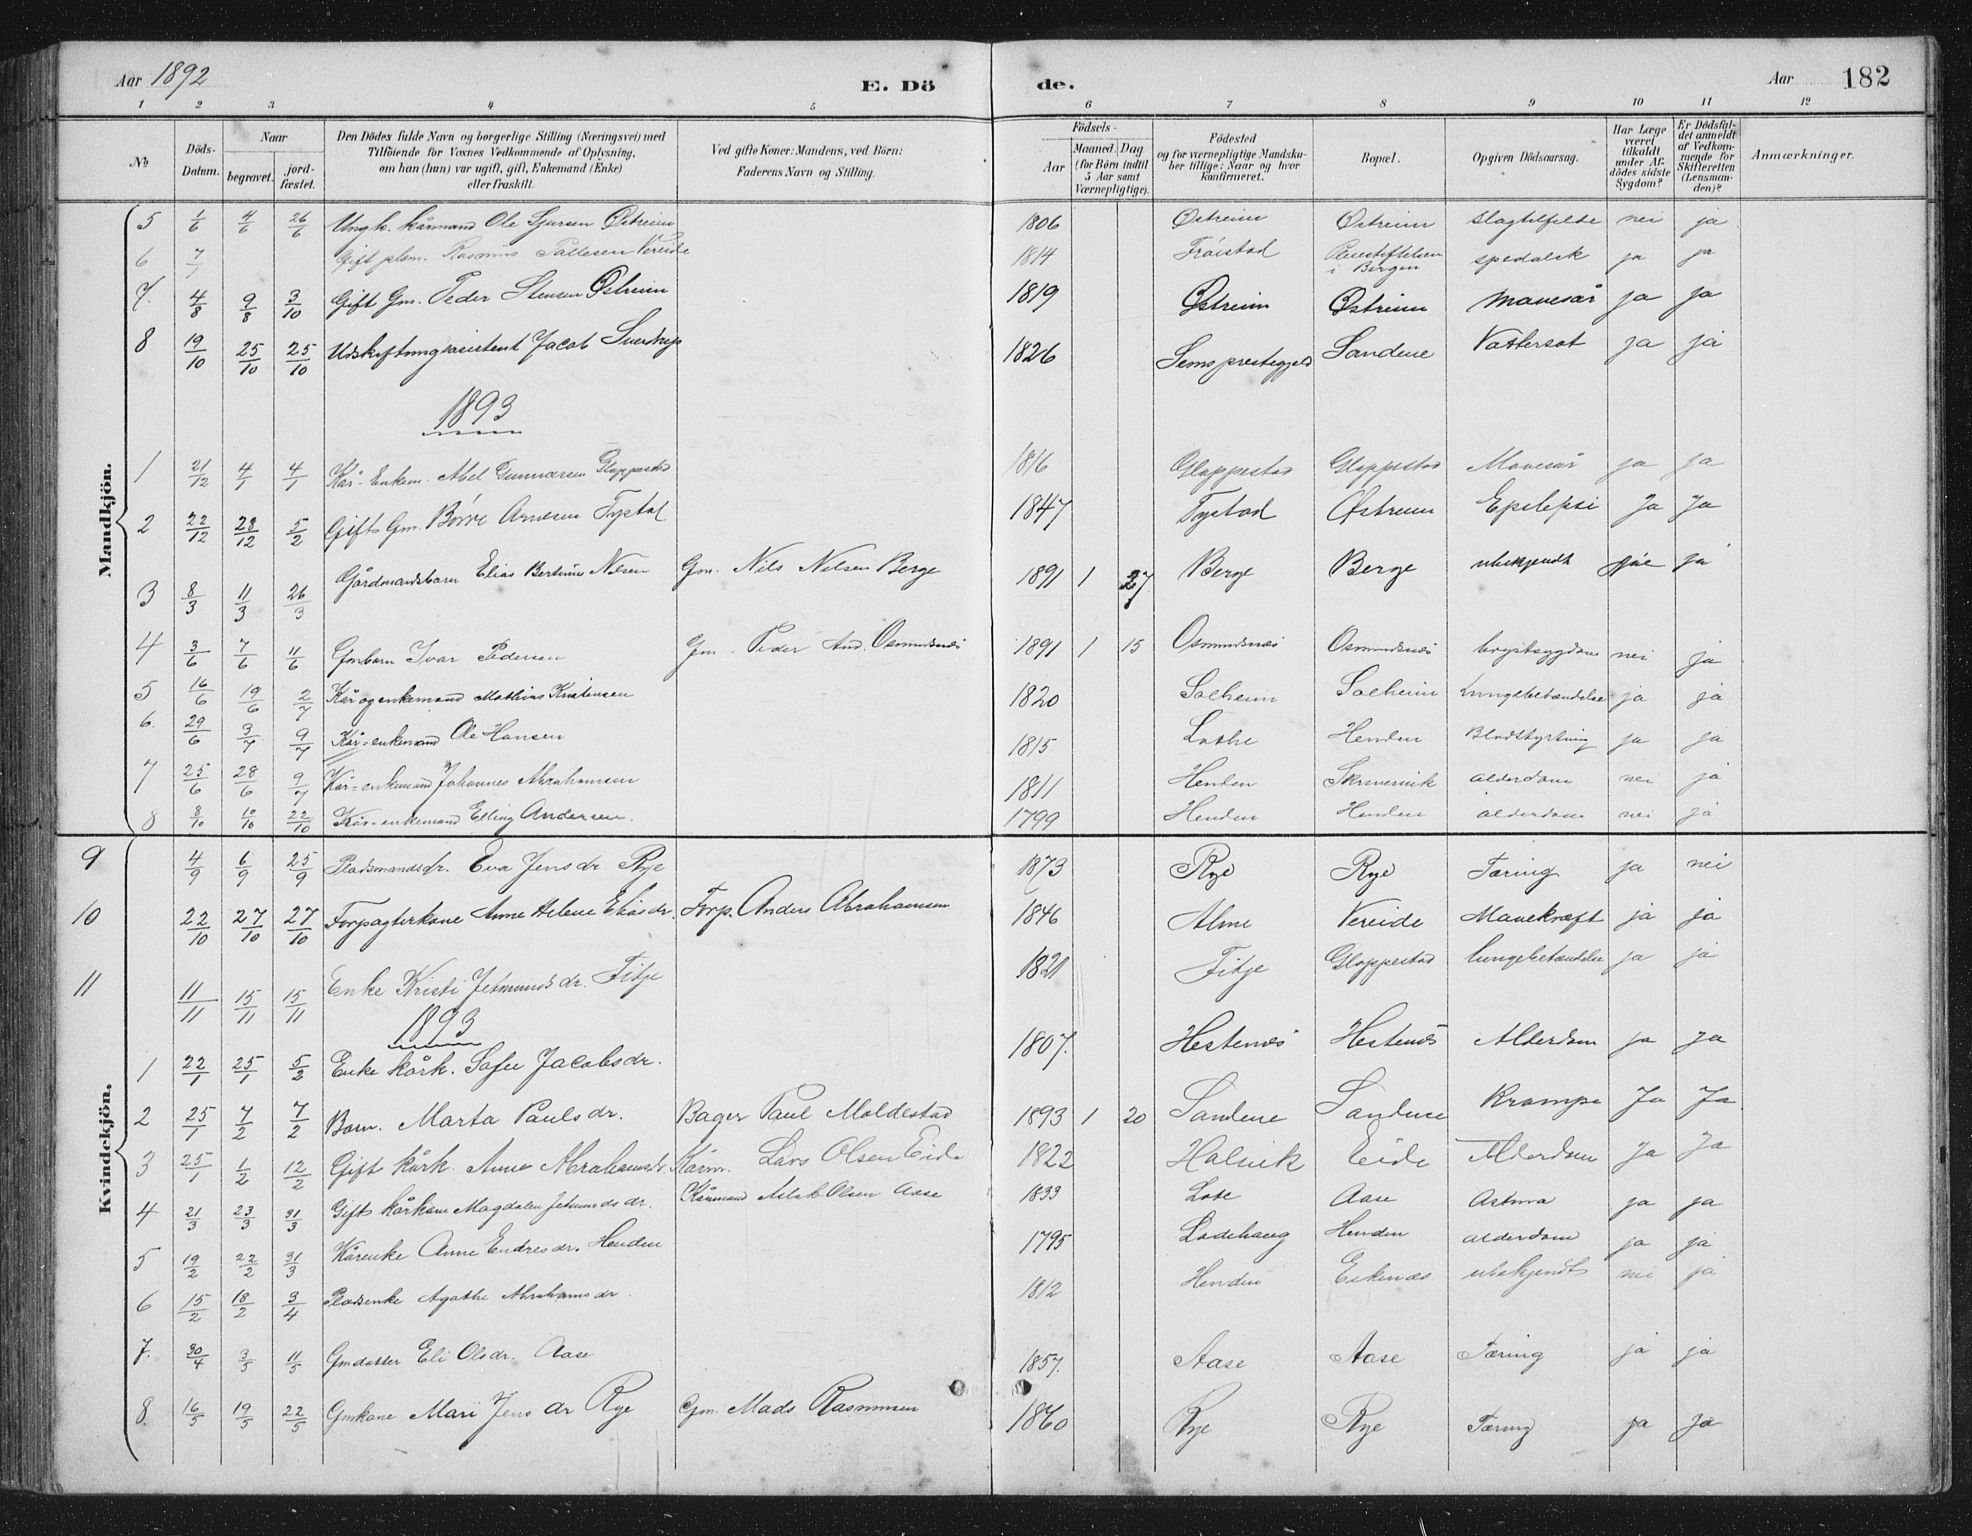 Aar 1892 E. Dö de. Aar 182
1 2 3 4 5 6 7 8 9 10 11 12
No Döds-Datum. Naar begravet. jordfæstet. Den Dödes fulde Navn og borgerlige Stilling (Næringsvei) med Tilföiende for Voxnes Vedkommende af Oplysning, om han (hun) var ugift, gift, Enkemand (Enke) eller fraskilt. Ved gifte Koner: Mandens, ved Börn: Faderens Navn og Stilling. Födsels- Aar Maaned. Dag (for Börn indtil 5 Aar samt Værnepligtige). Födested og for værnepligtige Mandskaber tillige: Naar og hvor konfirmeret. Bopæl. Opgiven Dödsaarsag. Har Læge været tilkaldt under Afdödes sidste Sygdom? Er Dödsfaldet anmeldt af Vedkommende for Skifteretten (Lensmanden)? Anmærkninger.
Mandkjön.
5 1/6 4/6 26/6 Ungk. kårmand Ole Sjursen Østreim 1806 Østreim Østreim slagtilfelde nei ja
6 7/1 Gift plsm. Rasmus Tollesen Vereide 1814 Fróistad Pleiestiftelsen i Bergen spedalsk ja ja
7. 4/8 9/8 3/10 Gift Gm. Peder Stensen Østreim 1819 Østreim Østreim Mavesår ja ja
8 19/10 25/10 25/10 Udskiftningsasistent Jacob 1826 Sems prestegjeld Sandene Vattersot ja ja
1893
1 21/12 4/1 4/1 Kår-Enkem. Abel Gunnarsen Gloppestad 1816 Gloppestad Gloppestad Mavesår ja ja
2 22/12 28/12 5/2 Gift Gm. Børre Arnesen Tystad 1847 Tystad Østreim Epilepsi Ja Ja
3 8/3 11/3 26/3 Gårdmandsbarn Elias Bertinus Nilsen Gm. Nils Nilsen Berge 1891 1 27 Berge Berge ubekjendt ja
4 3/6 7/6 11/6 Gmbarn Ivar Pedersen Gm. Peder And. Osmundsnes 1891 1 15 Osmundsnes Osmundsnes brystsygdom nei ja
5 16/6 19/6 2/7 Kår og enkemand Mathias Kristensen 1820 Solheim Solheim Lungebetændelse ja ja
6. 29/6 3/7 9/7 Kår-enkemand Ole Hansen 1815 Lothe Henden Blodstyrtning ja ja
7 25/6 28/6 9/7 Kår-enkemand Johannes Abrahamsen 1811 Henden Skrivervik alderdom nei ja
8 8/10 10/10 22/10 Kår-enkemand Elling Andersen. 1799 Henden Henden alderdom nei ja
Kvindekjön.
9 4/9 6/9 25/9 Pladsmandsdr. Eva Jensdr. Rye 1873 Rye Rye Tæring ja nei
10 22/10 27/10 27/10 Forpagterkone Anne Helene Eliasdr. Forp. Anders Abrahamsen 1846 Alme Vereide Mavekræft ja ja
11 11/11 15/11 15/11 Enke Kristi Jetmundsdr. Fitje 1821 Fitje Gloppestad lungebetændelse ja ja
1893
1 22/1 25/1 5/2 Enke kårk. Sofie Jacobsdr. 1807. Hestenes Hestenes Alderdom ja ja
2 25/1 7/2 7/2 Barn. Marta Paulsdr. Bager Paul Moldestad 1893 1 20 Sandene Sandene Krampe Ja Ja
3 25/1 1/2 12/2 Gift kårk. Anne Abrahamsdr. Kårm. Lars Olsen Eide 1822 Holvik Eide Alderdom Ja Ja
4 21/3 23/3 31/3 Gift kårkone Magdalen Jetmundsdr. Kårmand Aslak Olsen Aase 1833 Lote Aase Astma ja ja
5 19/2 22/2 31/3 Kårenke Anne Endresdr. Henden 1795 Lodehaug Henden alderdom ja ja
6 15/2 18/2 3/4 Pladsenke Agathe Abrahamsdr. 1812 Henden Eikenæs ubekjendt nei ja
7. 30/4 3/5 11/5 Gmdatter Eli Olsdr. Aase 1857. Aase Aase Tæring ja ja
8. 16/5 19/5 22/5 Gmkone Mari Jensdr Rye Gm. Mads Rasmussen 1860 Rye Rye Tæring ja ja